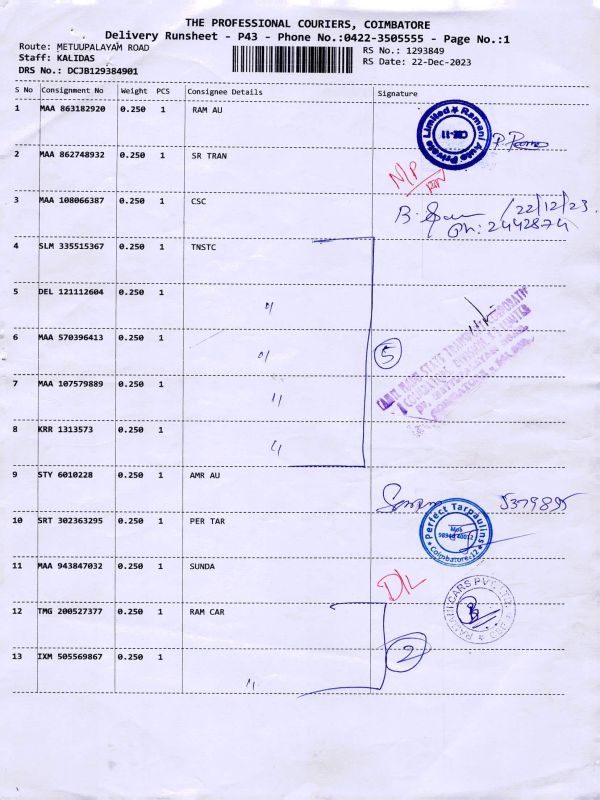 THE PROFESSIONAL COURIERS, COIMBATORE
Delivery Runsheet - P43 - Phone No.:0422-3505555 - Page No.:1
Route: METUUPALAYAM ROAD
RS No.: 1293849
Staff: KALIDAS
RS Date: 22-Dec-2023
DRS No.: DCJB129384901
S No Consignment No Weight PCS Consignee Details Signature
1 MAA 863182920 0.250 1 RAM AU
Ramani Auto Private Limited
CBE-11
2 MAA 862748932 0.250 1 SR TRAN
N/P
3 MAA 108066387 0.250 1 CSC
22/12/23
Ph: 2442874
4 SLM 335515367 0.250 1 TNSTC
5 DEL 121112604 0.250 1 "
6 MAA 570396413 0.250 1 "
5
7 MAA 107579889 0.250 1 "
8 KRR 1313573 0.250 1 "
9 STY 6010228 0.250 1 AMR AU
10 SRT 302363295 0.250 1 PER TAR
Perfect Tarpaulins
Coimbatore-12
11 MAA 943847032 0.250 1 SUNDA
D/L
12 TMG 200527377 0.250 1 RAM CAR
RAMANI CARS PVT LTD
2
13 IXM 505569867 0.250 1 "